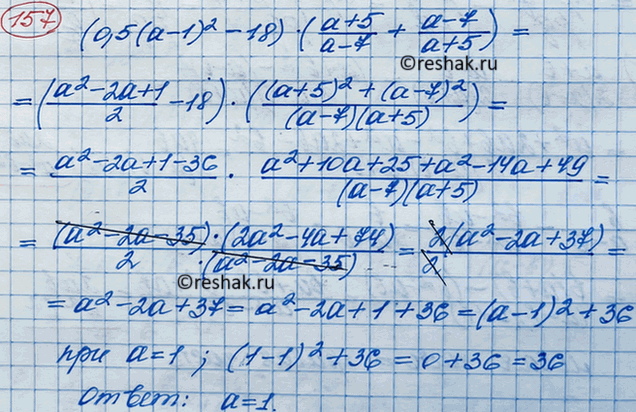 157
(0,5(a-1)² - 18) · (a+5/a-7 + a-7/a+5) =
©reshak.ru
= (a²-2a+1/2 - 18) · ((a+5)² + (a-7)²/(a-7)(a+5)) =
= a²-2a+1-36/2 · a²+10a+25+a²-14a+49/(a-7)(a+5) =
= (a²-2a-35) · (2a²-4a+74)/2 · (a²-2a-35) = 2(a²-2a+37)/2 =
©reshak.ru
= a²-2a+37 = a²-2a+1+36 = (a-1)²+36
при a=1; (1-1)²+36 = 0+36 = 36
Ответ: a=1.